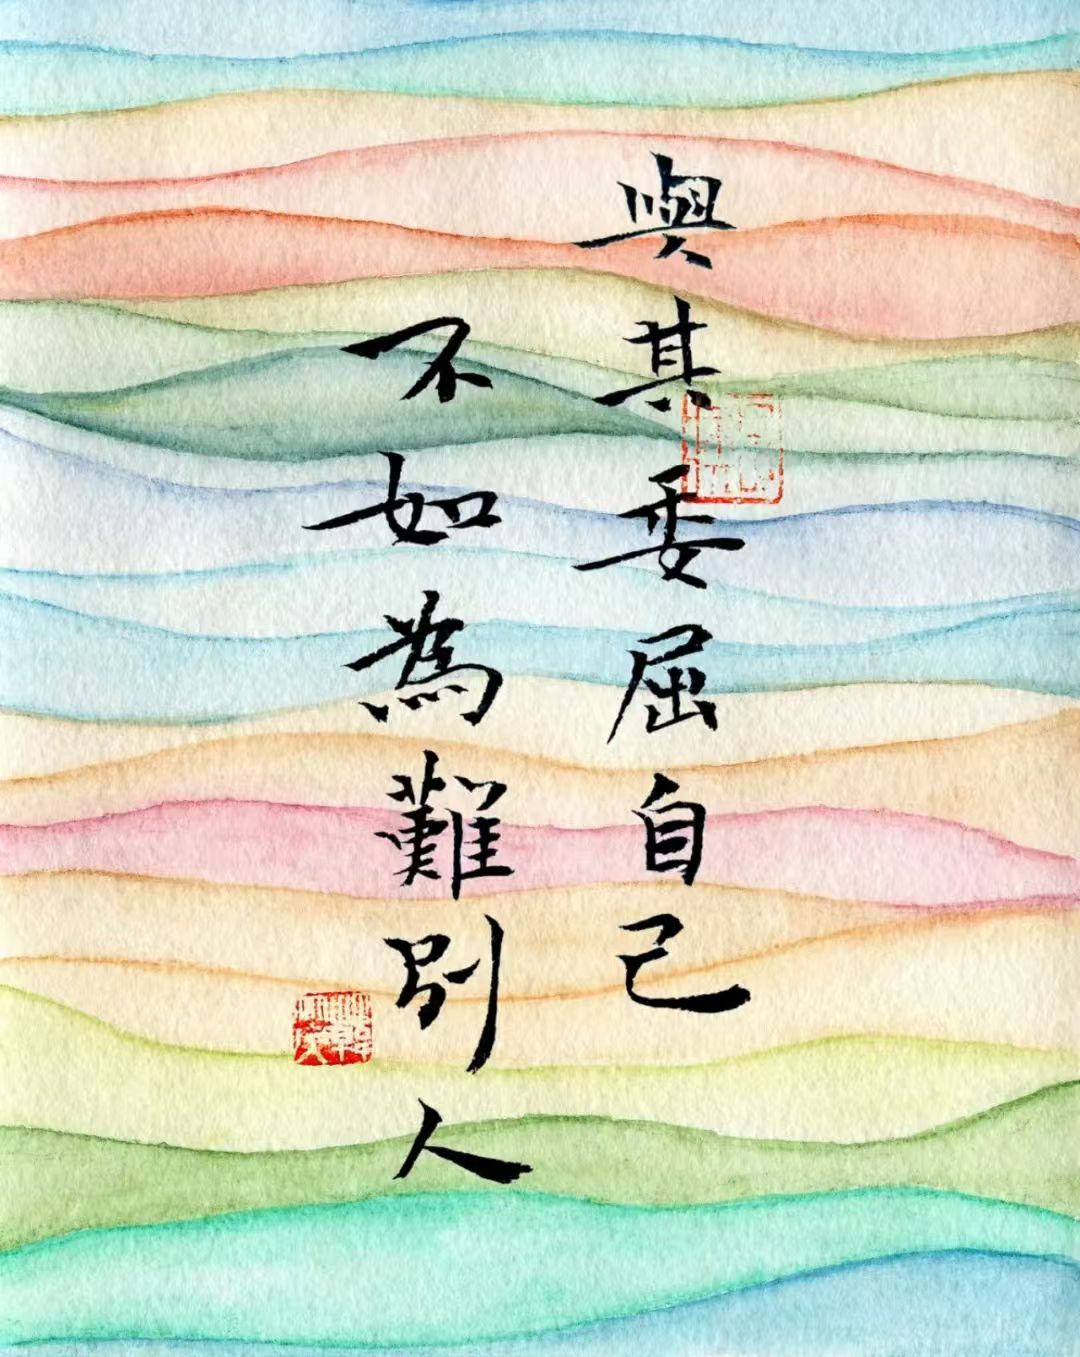 與其委屈自己
不如為難別人